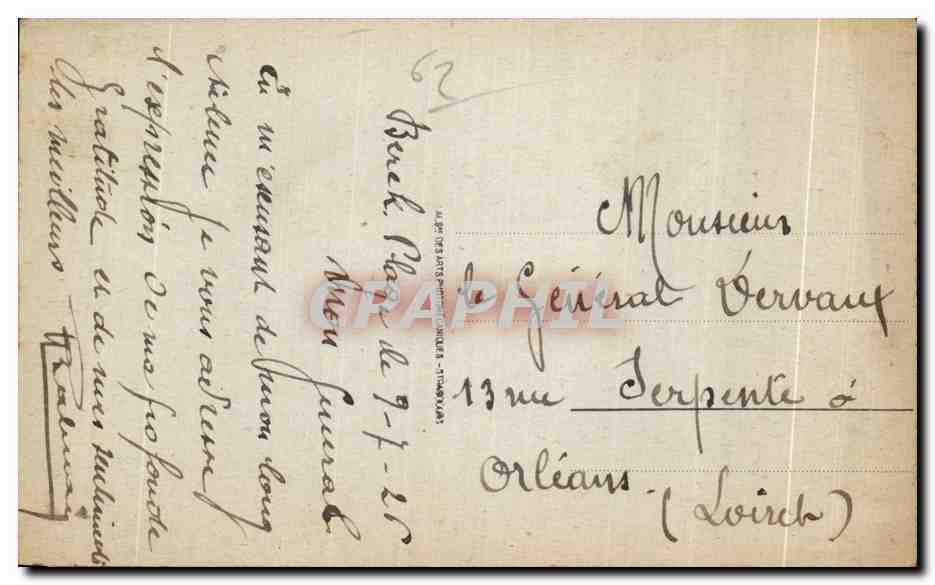 62
Berck. Plage le 9-7-26
Mon Général
En m'excusant de mon long
silence je vous adresse
l'expression de ma profonde
Gratitude et de mes sentiments
les meilleurs
ALBᵐ DES ARTS PHOTOMÉCANIQUES - STRASBOURG
GRAPHIL
Monsieur
le Général Dervaux
13 rue Serpente à
Orléans.
(Loiret)